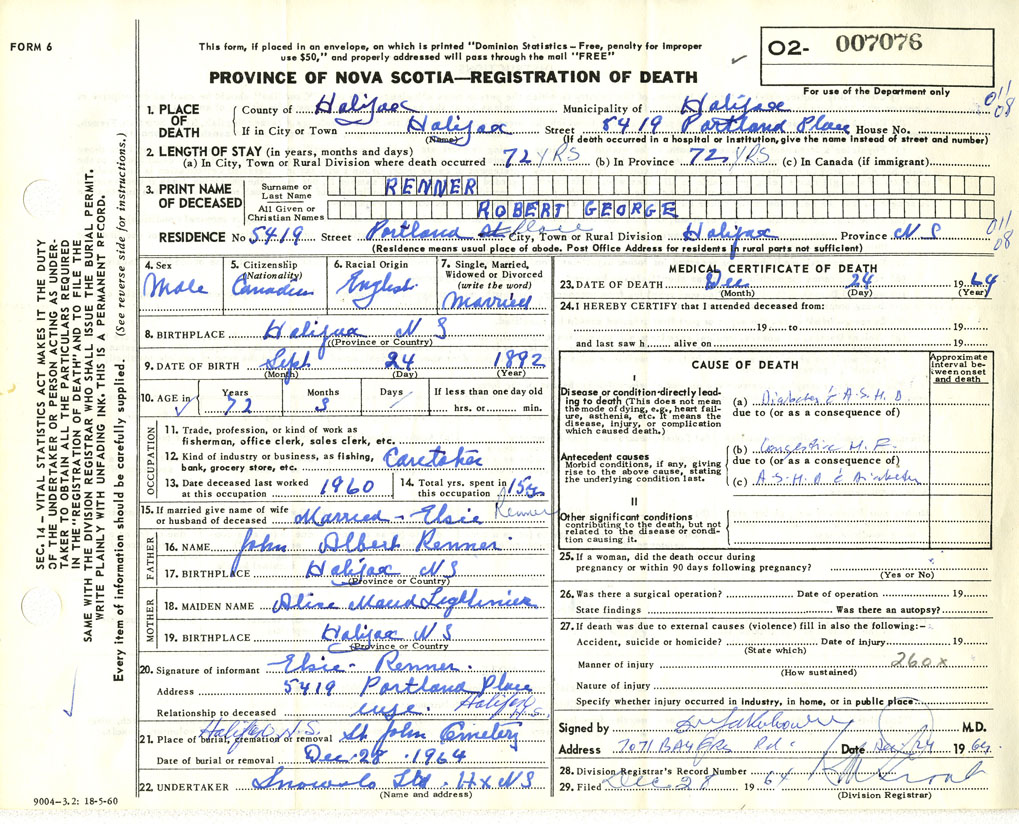 FORM 6
This form, if placed in an envelope, on which is printed "Dominion Statistics – Free, penalty for improper
use $50," and properly addressed will pass through the mail "FREE"
PROVINCE OF NOVA SCOTIA—REGISTRATION OF DEATH
02- 007076
For use of the Department only
011
08
1. PLACE OF DEATH
County of Halifax Municipality of Halifax
If in City or Town Halifax Street 5419 Portland Place House No.
(Name) (If death occurred in a hospital or institution, give the name instead of street and number)
2. LENGTH OF STAY (in years, months and days)
(a) In City, Town or Rural Division where death occurred 72 YRS (b) In Province 72 YRS (c) In Canada (if immigrant)
3. PRINT NAME OF DECEASED
Surname or Last Name RENNER
All Given or Christian Names ROBERT GEORGE
RESIDENCE No 5419 Street Portland St Place City, Town or Rural Division Halifax Province N S
011
08
(Residence means usual place of abode. Post Office Address for residents in rural parts not sufficient)
4. Sex Male
5. Citizenship (Nationality) Canadian
6. Racial Origin English
7. Single, Married, Widowed or Divorced (write the word) Married
8. BIRTHPLACE Halifax N S
(Province or Country)
9. DATE OF BIRTH Sept 24 1892
(Month) (Day) (Year)
10. AGE in Years 72 Months 3 Days If less than one day old hrs. or min.
OCCUPATION
11. Trade, profession, or kind of work as
fisherman, office clerk, sales clerk, etc.
12. Kind of industry or business, as fishing,
bank, grocery store, etc. Caretaker
13. Date deceased last worked at this occupation 1960
14. Total yrs. spent in this occupation 15 yrs
15. If married give name of wife
or husband of deceased Married - Elsie Renner
FATHER
16. NAME John Albert Renner
17. BIRTHPLACE Halifax N S
(Province or Country)
MOTHER
18. MAIDEN NAME Maud
19. BIRTHPLACE Halifax N S
(Province or Country
20. Signature of informant Elsie Renner
Address 5419 Portland Place
Halifax N.S.
Relationship to deceased wife
21. Place of burial, cremation or removal Halifax N.S. St John Cemetery
Date of burial or removal Dec 28 1964
22. UNDERTAKER Snows Ltd Hx N S
(Name and address)
9004—3.2: 18-5-60
MEDICAL CERTIFICATE OF DEATH
23. DATE OF DEATH Dec 24 1964
(Month) (Day) (Year)
24. I HEREBY CERTIFY that I attended deceased from:
19 to 19
and last saw h alive on 19
CAUSE OF DEATH
Approximate interval between onset and death
I
Disease or condition directly leading to death (This does not mean the mode of dying, e.g., heart failure, asthenia, etc. It means the disease, injury, or complication which caused death.)
(a) Diabetes & A.S.H.D
due to (or as a consequence of)
Antecedent causes
Morbid conditions, if any, giving rise to the above cause, stating the underlying condition last.
(b) Congestive H.F.
due to (or as a consequence of)
(c) A.S.H.D & Diabetes
II
Other significant conditions
contributing to the death, but not related to the disease or condition causing it.
25. If a woman, did the death occur during
pregnancy or within 90 days following pregnancy?
(Yes or No)
26. Was there a surgical operation? Date of operation 19
State findings Was there an autopsy?
27. If death was due to external causes (violence) fill in also the following:–
Accident, suicide or homicide? Date of injury 19
(State which)
Manner of injury 260x
(How sustained)
Nature of injury
Specify whether injury occurred in industry, in home, or in public place
Signed by M.D.
Address 7071 BAYERS Rd. Date Dec 24 1964
28. Division Registrar's Record Number
29. Filed Dec 28 1964
(Division Registrar)
SEC. 14 – VITAL STATISTICS ACT MAKES IT THE DUTY
OF THE UNDERTAKER OR PERSON ACTING AS UNDER-
TAKER TO OBTAIN ALL THE PARTICULARS REQUIRED
IN THE "REGISTRATION OF DEATH" AND TO FILE THE
SAME WITH THE DIVISION REGISTRAR WHO SHALL ISSUE THE BURIAL PERMIT.
WRITE PLAINLY WITH UNFADING INK. THIS IS A PERMANENT RECORD.
Every item of information should be carefully supplied. (See reverse side for instructions.)